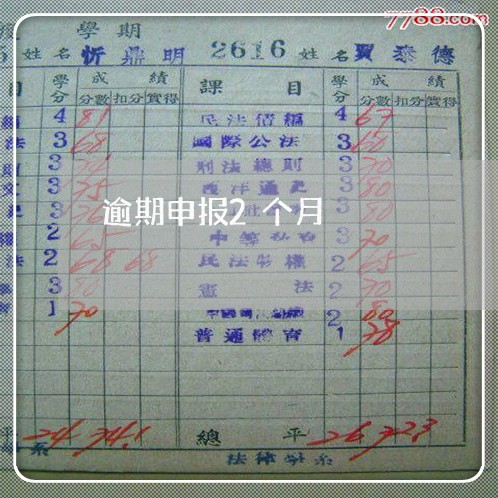 7788.com
學期
姓名 忻鼎明 2616 姓名 賈泰德
目 學分 成績 課目 學分 成績
分數 扣分 實得 分數 扣分 實得
4 81 民法債編 4 67
法 3 68 國際公法 3 60
3 刑法總則 3 70
3 75 西洋通史 3 80
3 80
逾期申报2 个月
2 65 3 70
法 2 68 68 民法物權 2 65
3 80 憲法 2 70
1 70 2 80
普通體育 1 78
平 24 74.1 總平 26 72.3
系 法律學系